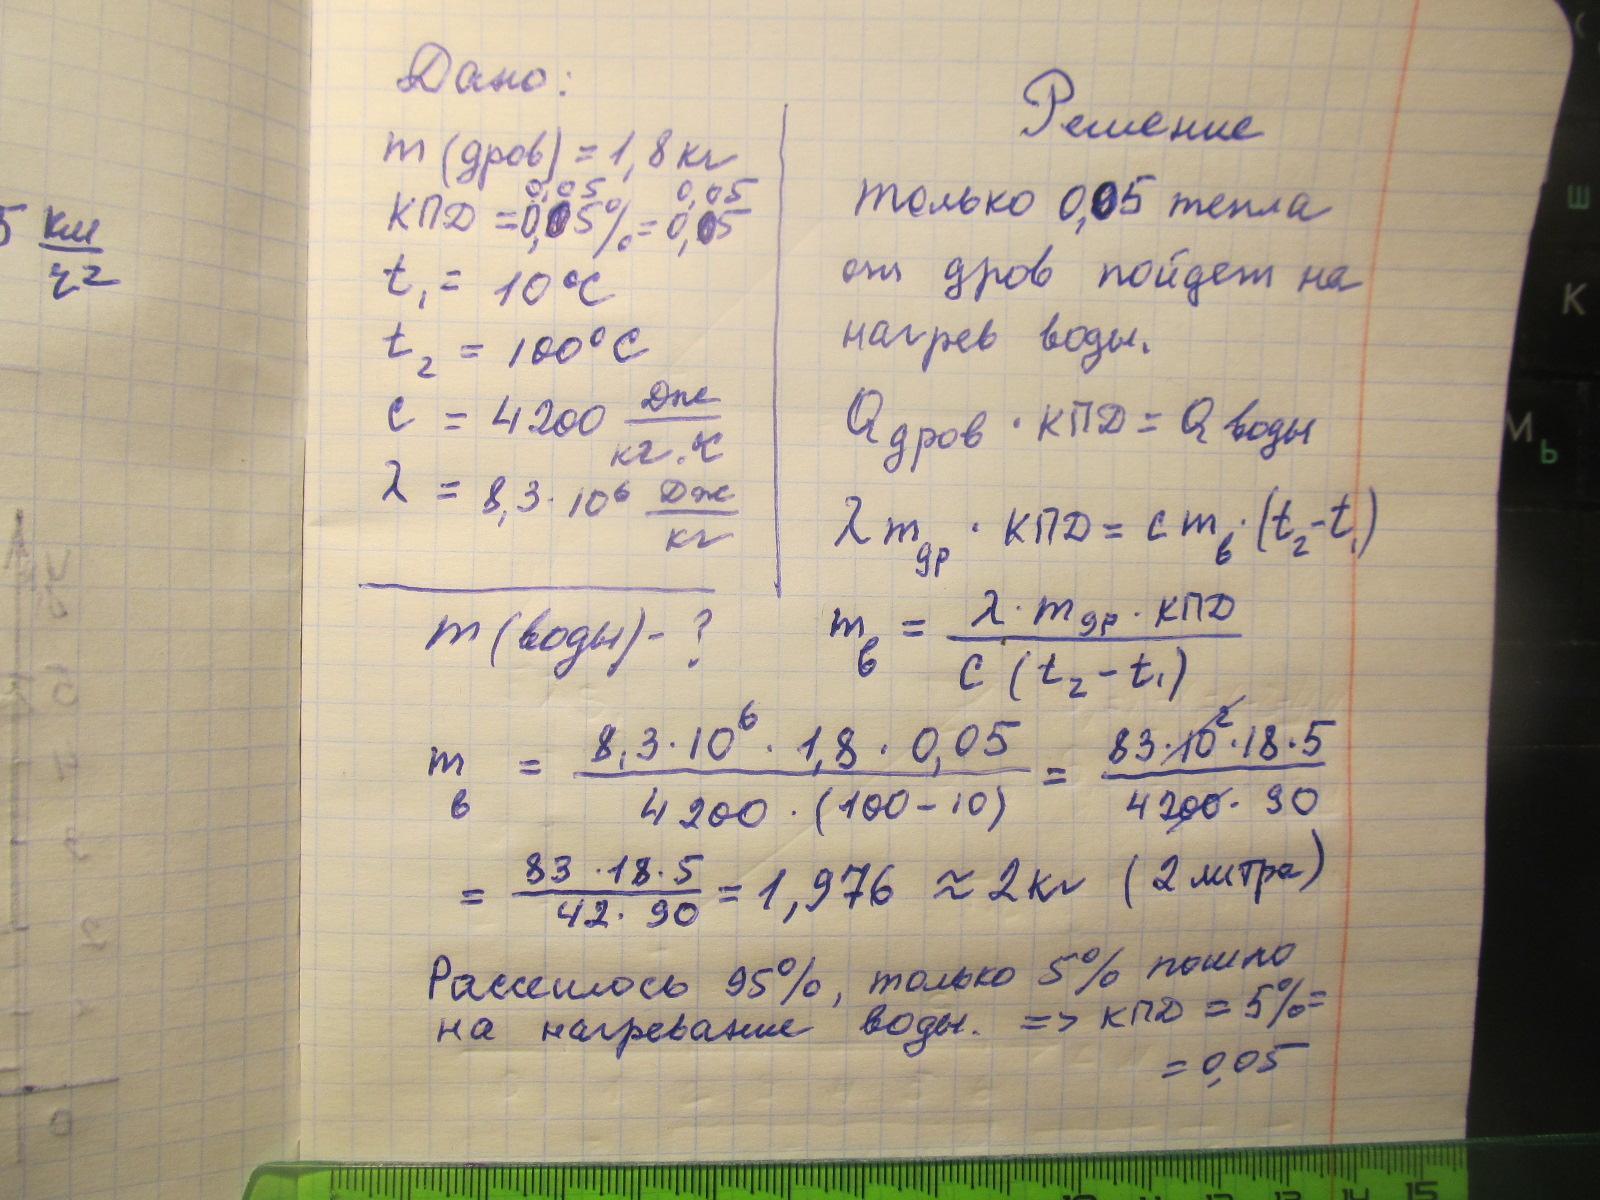 Дано:
m (дров) = 1,8 кг
0,05 0,05
КПД = 0,05% = 0,05
t₁ = 10°C
t₂ = 100°C
c = 4200 Дж/кг·°C
λ = 8,3·10⁶ Дж/кг
m (воды) - ?
Решение
только 0,05 тепла
от дров пойдет на
нагрев воды.
Q дров · КПД = Q воды
λ m др · КПД = c m в · (t₂ - t₁)
m в = λ · m др · КПД / c (t₂ - t₁)
m в = 8,3·10⁶ · 1,8 · 0,05 / 4200 · (100 - 10) = 83·10²·18·5 / 4200 · 90
= 83 · 18 · 5 / 42 · 90 = 1,976 ≈ 2 кг (2 литра)
Рассеялось 95%, только 5% пошло
на нагревание воды. => КПД = 5% =
= 0,05
5 км/ч²
Ш
К
М
Ь
12 13 14 15